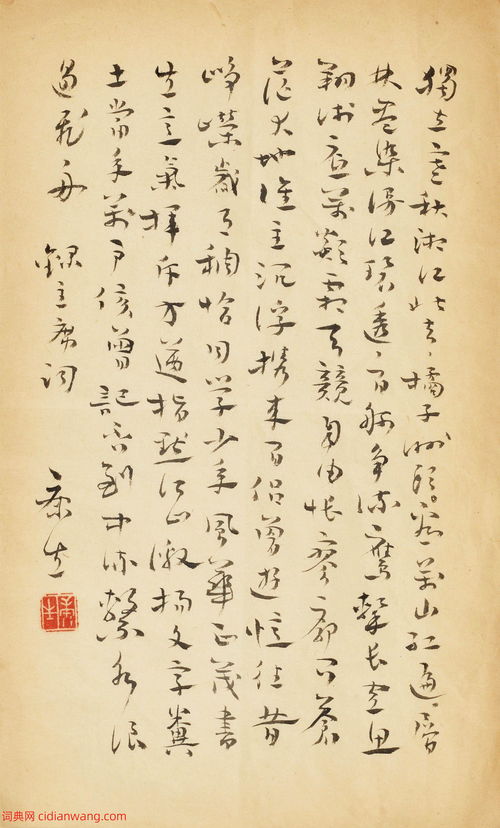 獨立寒秋湘江北去、橘子洲頭。看萬山紅遍、層
林盡染漫江碧透、百舸爭流鷹擊長空魚
翔淺底萬類霜天競自由悵寥廓問蒼
茫大地誰主沉浮携來百侣曾遊憶往昔
崢嶸歲月稠恰同學少年風華正茂書
生意氣揮斥方遒指點江山激揚文字糞
土當年萬戶侯曾記否到中流擊水浪
遏飛舟 錄主席词
康生
康生
词典网 cidianwang.com